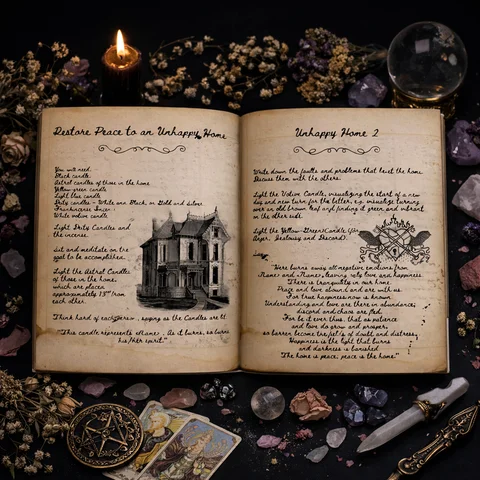 Restore Peace to an Unhappy Home
You will need:
Black candle.
Astral candles of those in the home
Yellow green candle
Light blue candle
Deity candles - White and Black, or Gold and Silver.
Frankincense Incense
White votive candle
Light Deity Candles and
the incense.
Sit and meditate on the
goal to be accomplished.
Light the Astral Candles
of those in the home,
which are placed
approximately 13" from
each other.
Think hard of each person, as the Candles are lit.
"This candle represents <Name>. As it burns, so burns
his/her spirit."
Unhappy Home 2
Write down the faults and problems that beset the home.
Discuss them with the others.
Light the Votive Candle, visualizing the start of a new
day and new turn for the better, e.g. visualize turning
over an old brown leaf and finding it green and vibrant
on the other side.
Light the Yellow-Green Candle (for
Anger, Jealousy and Discord).
"Here burns away all negative emotions from
<Name> and <Name>, leaving only love and happiness
There is tranquility in our home
Peace and love abound and are with us.
For true happiness now is known.
Understanding and love are there in abundance;
discord and chaos are fled.
For be it ever thus, that as patience
and love do grow and prosper,
so barren become the fields of doubt and distress.
Happiness is the light that burns
and darkness is banished
The home is peace; peace is the home."